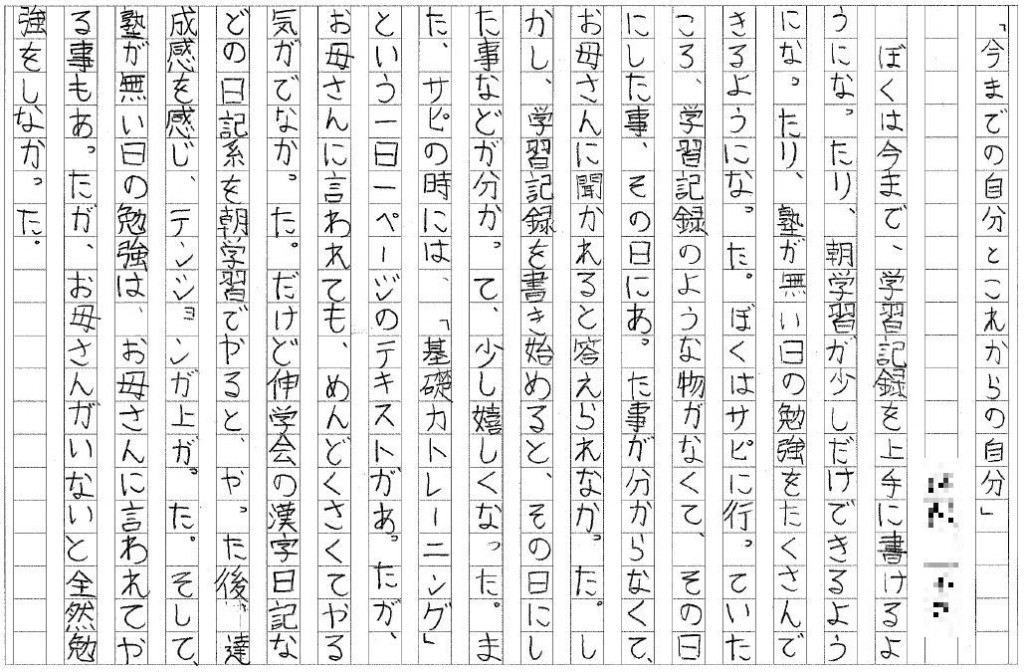 「今までの自分とこれからの自分」
ぼくは今まで、学習記録を上手に書けるよ
うになったり、朝学習が少しだけできるよう
になったり、塾が無い日の勉強をたくさんで
きるようになった。ぼくはサピに行っていた
ころ、学習記録のような物がなくて、その日
にした事、その日にあった事が分からなくて、
お母さんに聞かれると答えられなかった。し
かし、学習記録を書き始めると、その日にし
た事などが分かって、少し嬉しくなった。ま
た、サピの時には、「基礎力トレーニング」
という一日一ページのテキストがあったが、
お母さんに言われても、めんどくさくてやる
気がでなかった。だけど伸学会の漢字日記な
どの日記系を朝学習でやると、やった後、達
成感を感じ、テンションが上がった。そして、
塾が無い日の勉強は、お母さんに言われてや
る事もあったが、お母さんがいないと全然勉
強をしなかった。